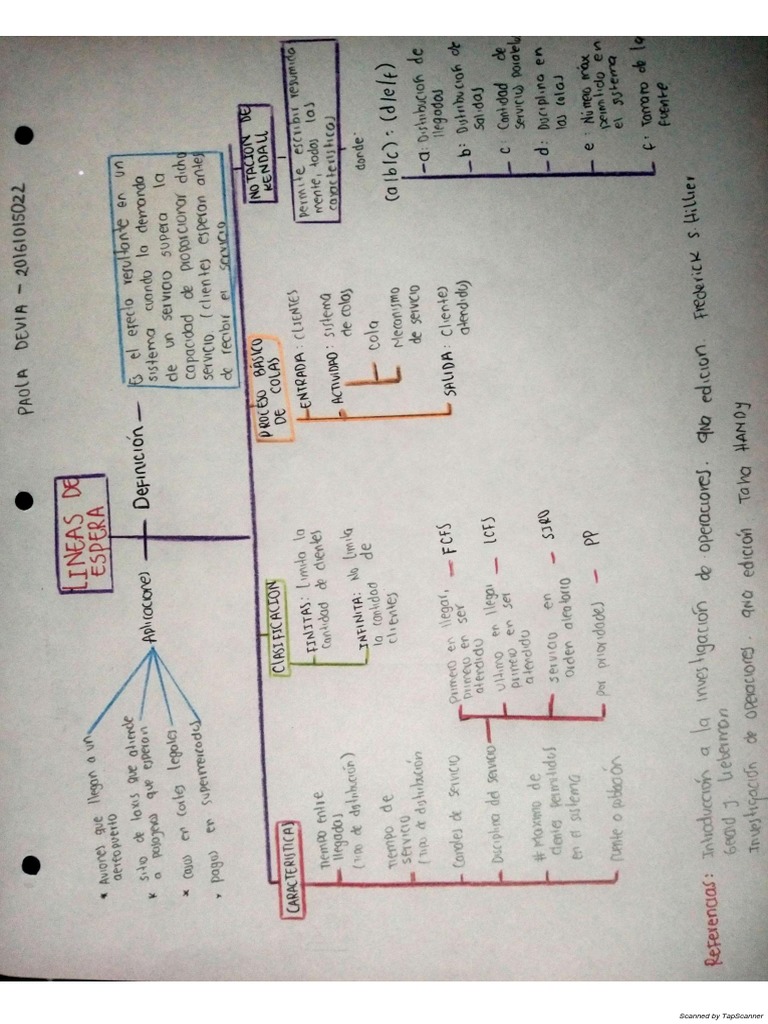 PAOLA DEVIA - 20161015022
LINEAS DE
ESPERA
Aplicaciones
* Aviones que llegan a un
aeropuerto
* Sitio de taxis que atiende
a pasajeros que esperan
* casos en cortes legales
* pagos en supermercados
Definición
Es el efecto resultante en un
sistema cuando la demanda
de un servicio supera la
capacidad de proporcionar dicho
servicio. (clientes esperan antes
de recibir el servicio
CARACTERISTICAS
Tiempo entre
llegadas
(Tipo de distribución)
Tiempo de
servicio
(Tipo de distribución)
Canales de servicio
Disciplina del servicio
Primero en llegar,
primero en ser
atendido
FCFS
Ultimo en llegar
primero en ser
atendido
LCFS
servicio en
orden aleatorio
SIRO
por prioridades
PP
# Maximo de
clientes permitidos
en el sistema
Fuente o población
CLASIFICACION
FINITAS: Limita la
cantidad de clientes
INFINITA: No limita
la cantidad de
clientes
PROCESO BÁSICO
DE COLAS
ENTRADA: CLIENTES
ACTIVIDAD: sistema
de colas
Cola
Mecanismo
de servicio
SALIDA: Clientes
atendidos
NOTACION DE
KENDALL
permite escribir resumida
mente, todas las
caracteristicas
donde:
(a|b|c):(d|e|f)
a: Distribución de
llegadas
b: Distribución de
salidas
c: Cantidad de
servicios paralelos
d: Disciplina en
las colas
e: Número máx
permitido en
el sistema
f: Tamaño de la
fuente
Referencias: Introducción a la investigación de operaciones. 9na edicion. Frederick S. Hillier
Gerald J. Lieberman
Investigación de operaciones. 9na edición Taha HAMDY
Scanned by TapScanner